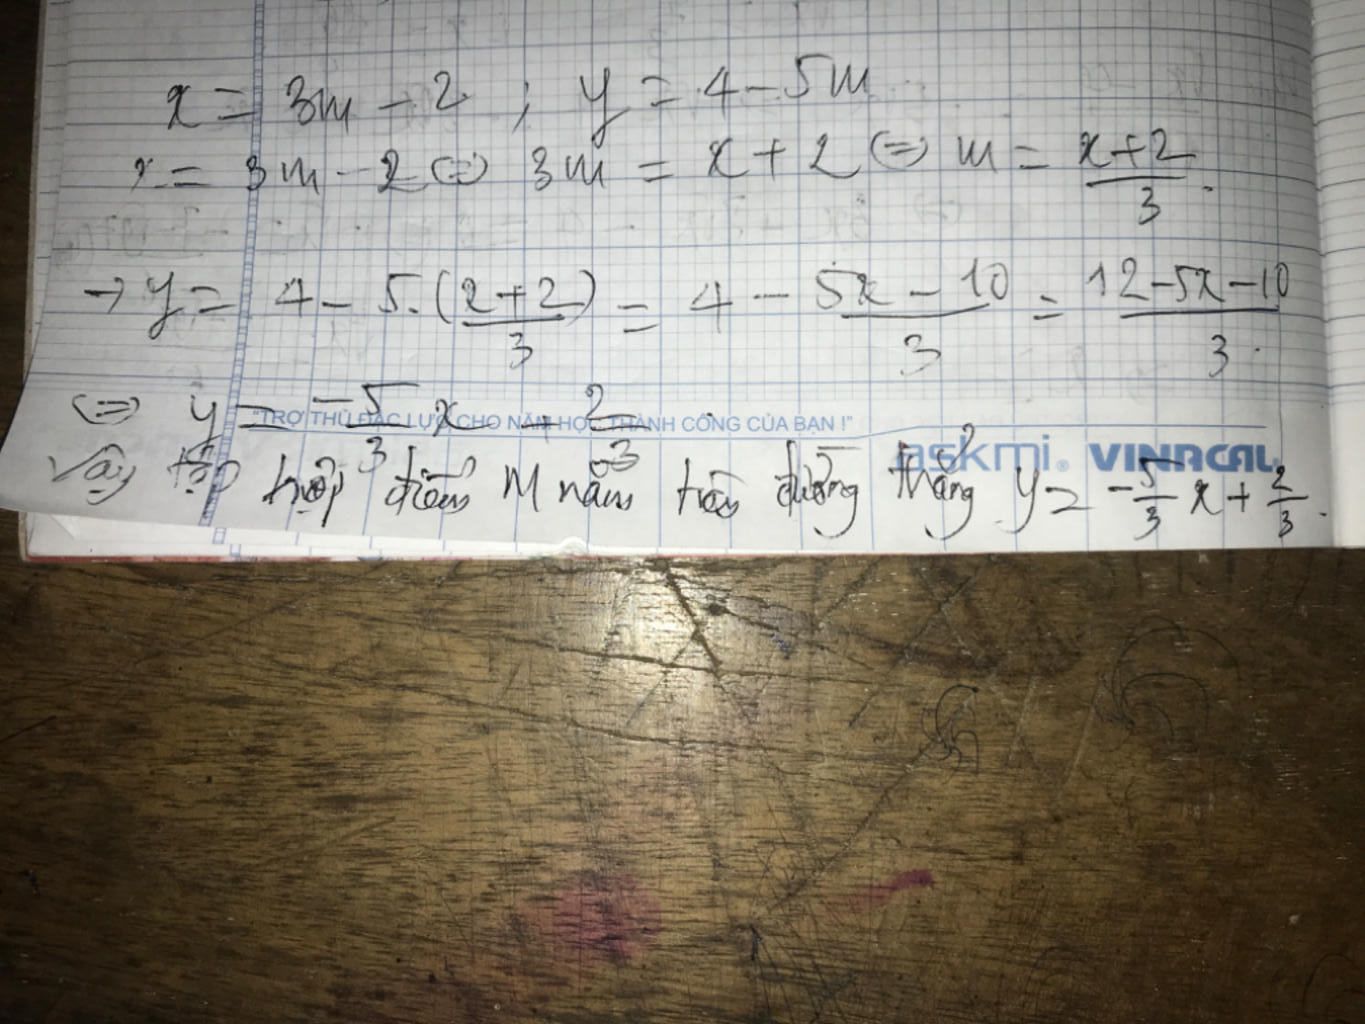 x = 3m - 2 ; y = 4 - 5m
x = 3m - 2 ⇔ 3m = x + 2 ⇔ m = (x+2)/3.
→ y = 4 - 5.((x+2)/3) = 4 - (5x - 10)/3 = (12-5x-10)/3.
⇔ y = -5/3 x + 2/3
"TRỢ THỦ ĐẮC LỰC CHO NĂM HỌC THÀNH CÔNG CỦA BẠN !"
askmi. VINACAL
Vậy tập hợp điểm M nằm trên đường thẳng y = -5/3 x + 2/3.